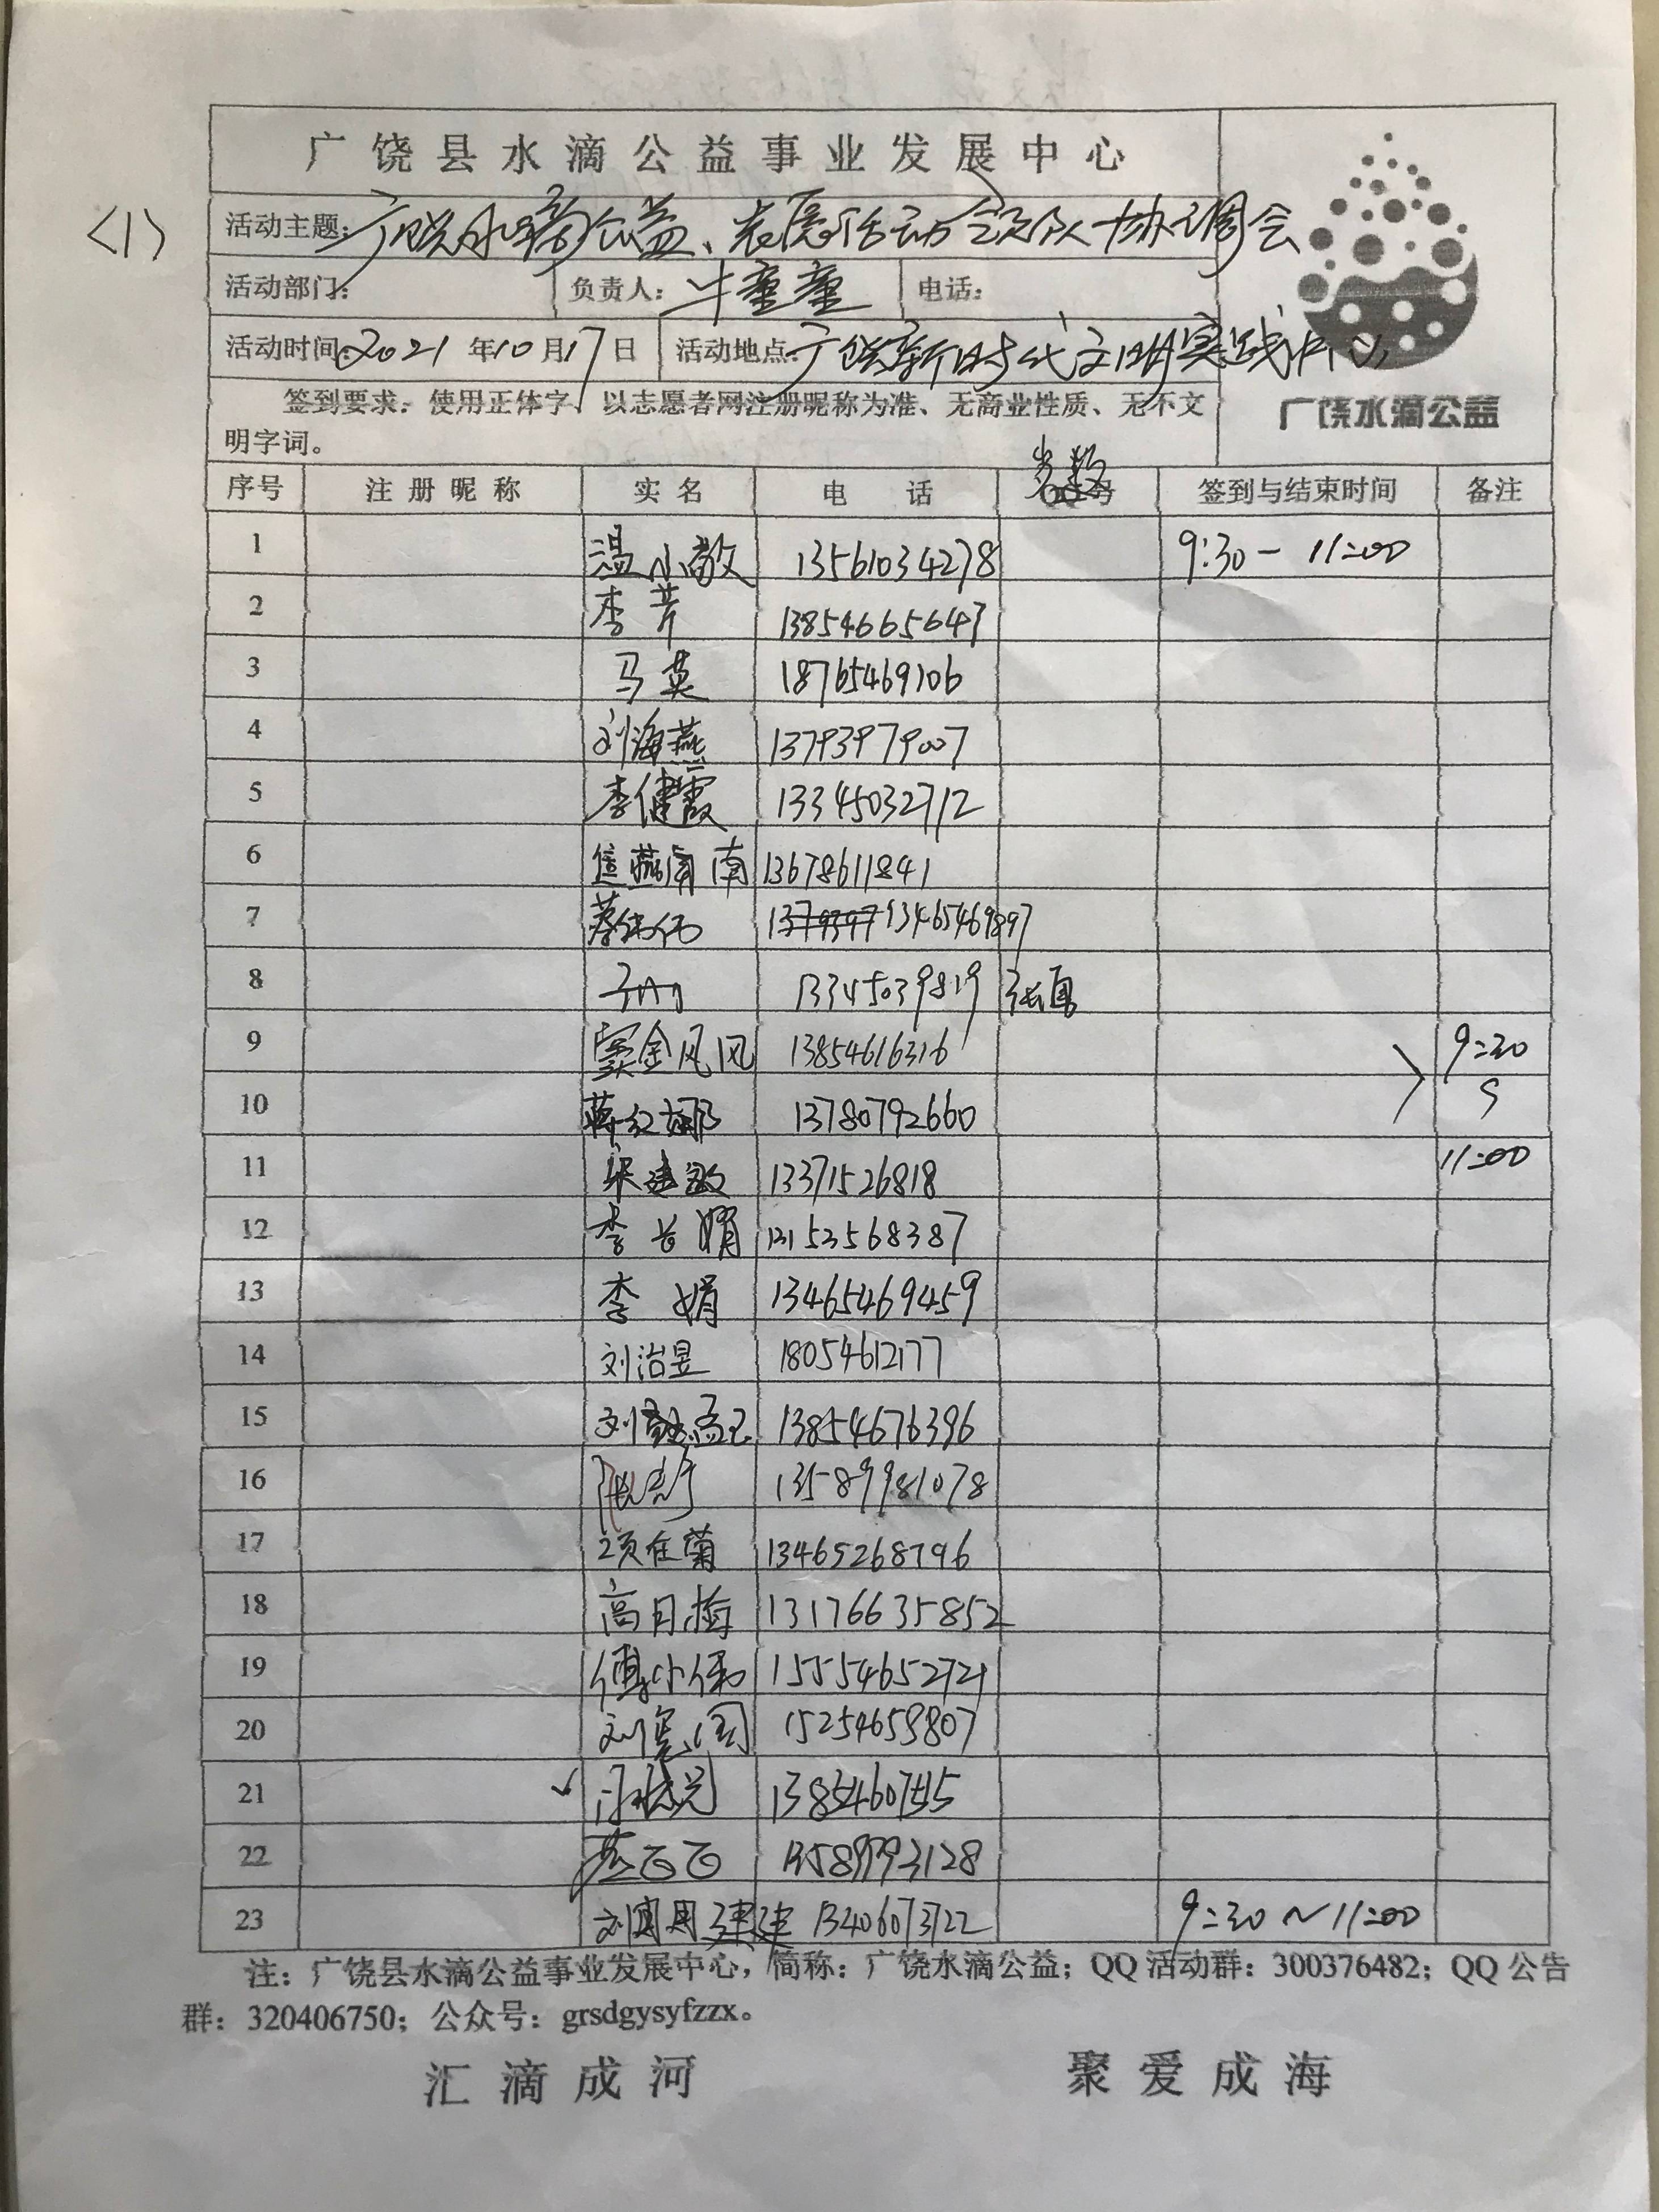 广饶县水滴公益事业发展中心
<1>
活动主题：广饶水滴公益、志愿活动领队协调会
活动部门： 负责人：牛童童 电话：
活动时间：2021年10月17日 活动地点：广饶新时代文明实践中心
签到要求：使用正体字、以志愿者网注册昵称为准、无商业性质、无不文
明字词。
广饶水滴公益
序号 注册昵称 实名 电话 签到与结束时间 备注
1 温小敏 13561034278 9:30－11:00
2 李芹 13854665643
3 马英 18765469106
4 刘海燕 13793979007
5 李健霞 13345032712
6 13678611841
7 蔡伟伟 13465469897
8 13345039819 张勇
9 窦金凤 13854616316 9:30
10 蒋红娜 13780792660
11 宋建敏 13371526818 11:00
12 李长娟 13153568387
13 李娟 13465469459
14 刘治昱 18054612177
15 刘孟 13854676396
16 13589981078
17 项佳菊 13465268796
18 高月梅 13176635852
19 傅小伟 15554652721
20 刘宪国 15254659807
21
22 燕飞飞 13589993128
23 刘建 13406073722 9:30～11:00
注：广饶县水滴公益事业发展中心，简称：广饶水滴公益；QQ活动群：300376482；QQ公告
群：320406750；公众号：grsdgysyfzzx。
汇滴成河 聚爱成海